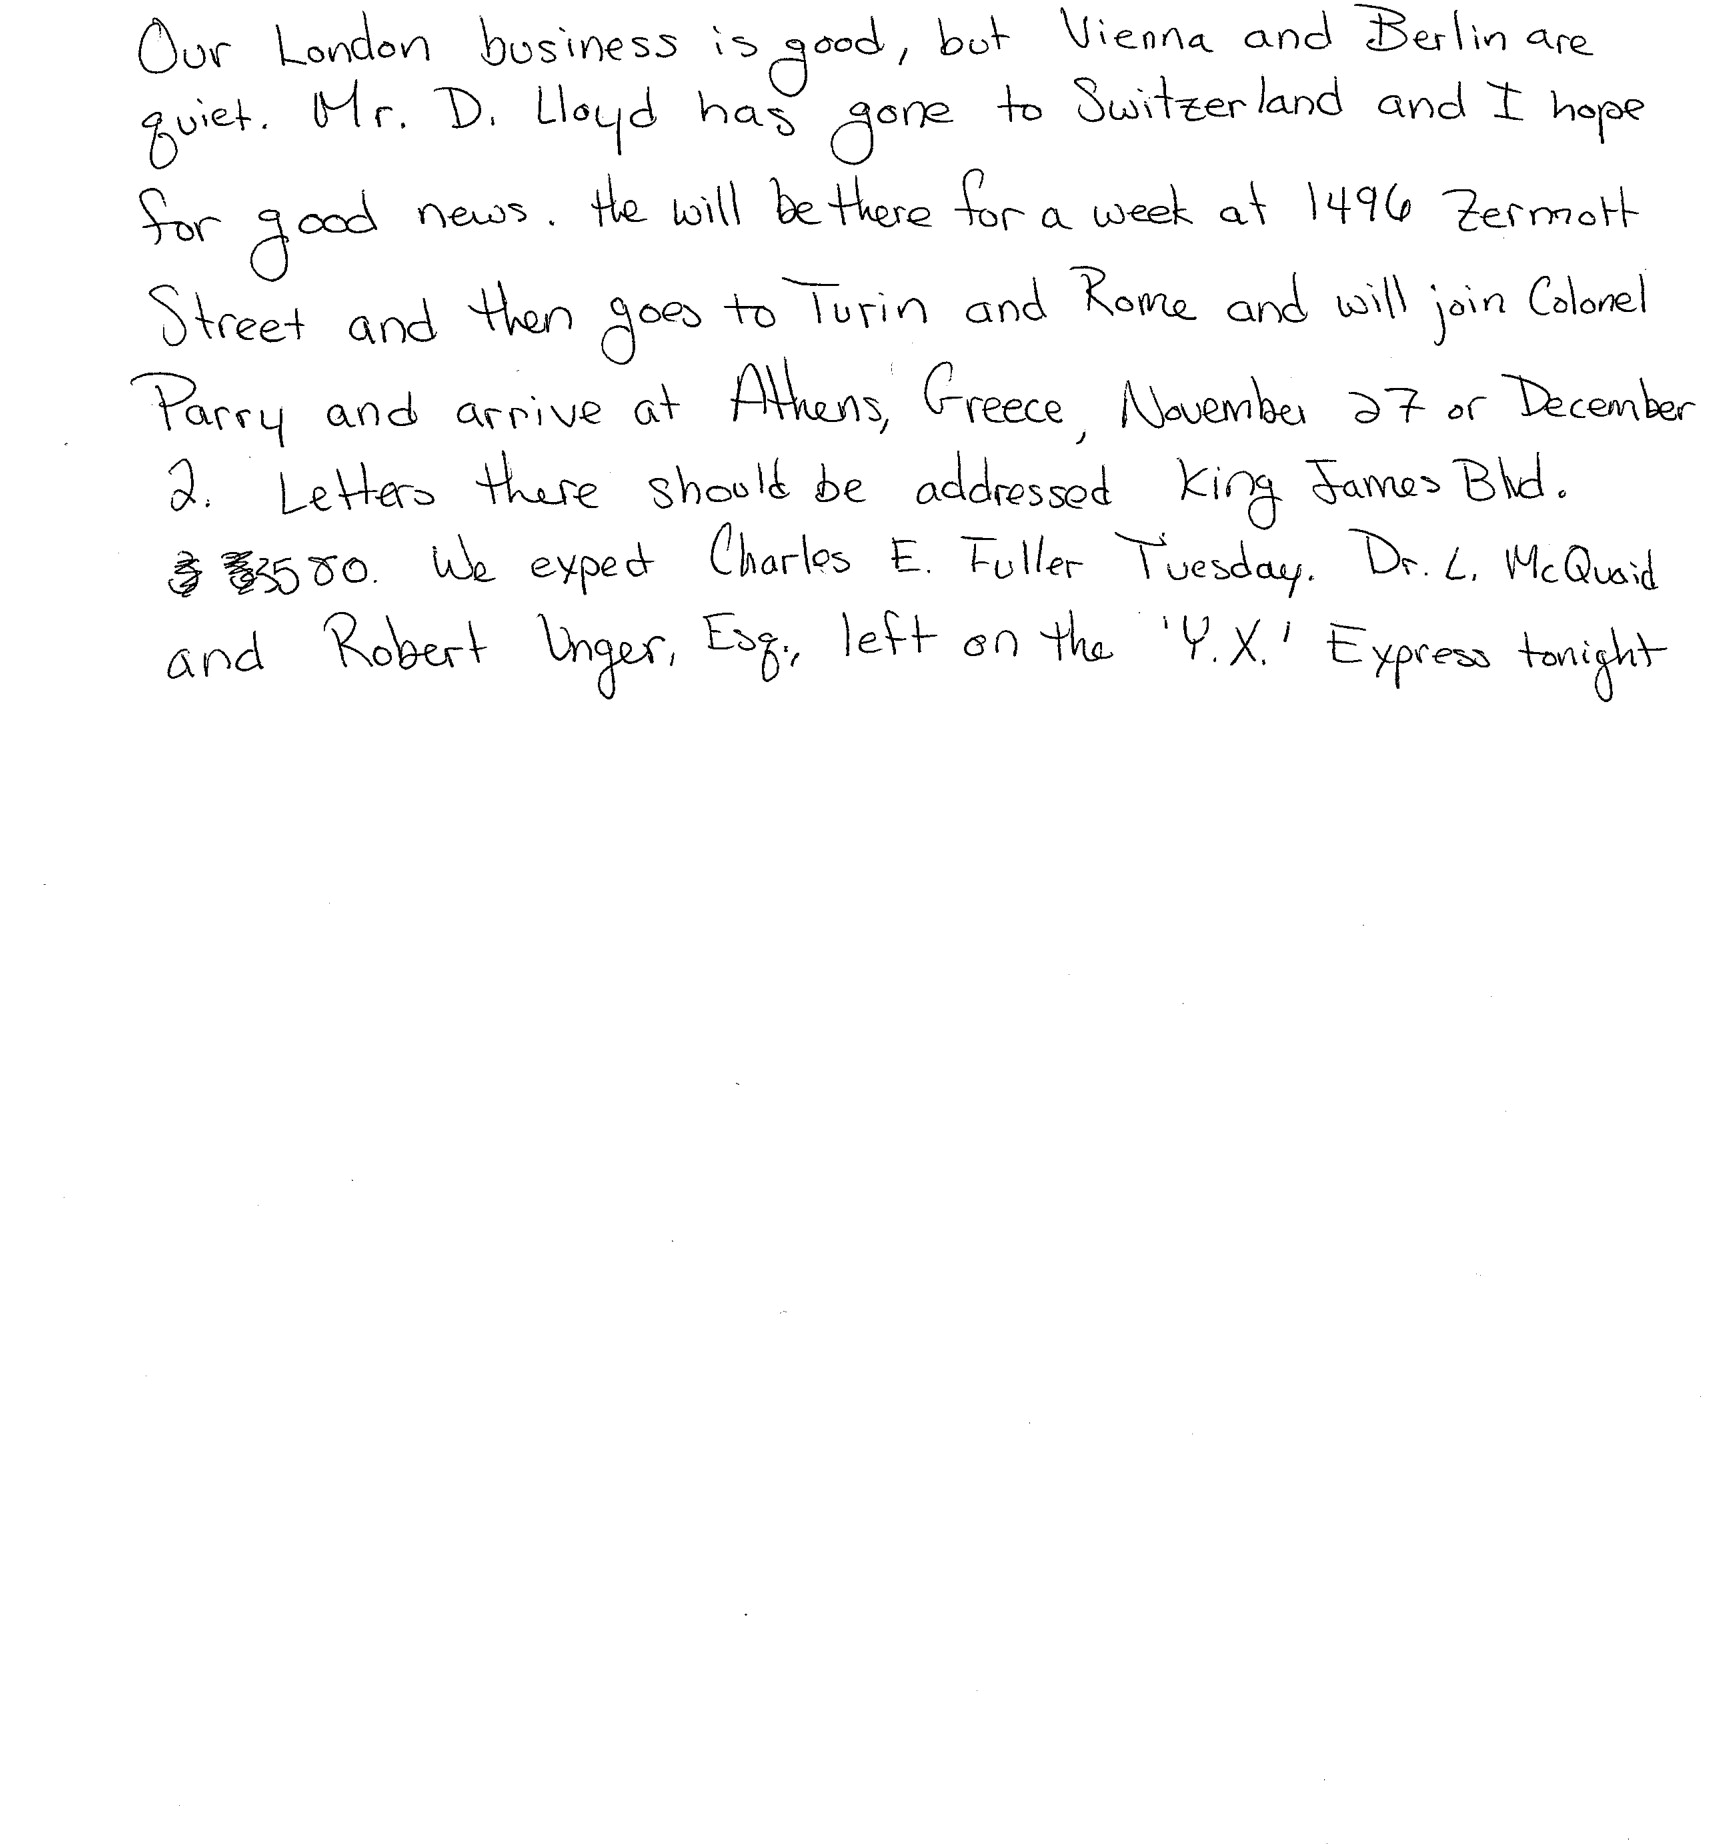 Our London business is good, but Vienna and Berlin are
quiet. Mr. D. Lloyd has gone to Switzerland and I hope
for good news. He will be there for a week at 1496 Zermott
Street and then goes to Turin and Rome and will join Colonel
Parry and arrive at Athens, Greece, November 27 or December
2. Letters there should be addressed King James Blvd.
3580. We expect Charles E. Fuller Tuesday. Dr. L. McQuaid
and Robert Unger, Esq., left on the 'Y.X.' Express tonight